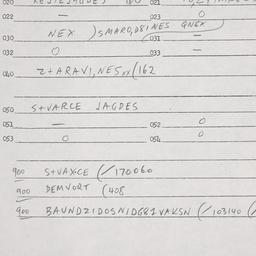 020
022 — 023 O
030 NEX ) SMARO,D8INES QNEX
031 —
032 O 033 —
040 Z+ARAVI,NESxx(162
050 S+VARCE JAGDES
051 — 052 O
053 O 054 O
900 S+VAXCE (/170060
900 DEMVORT (408
900 BAUNDZIDOSNIDG81VAKSN (/103140 (